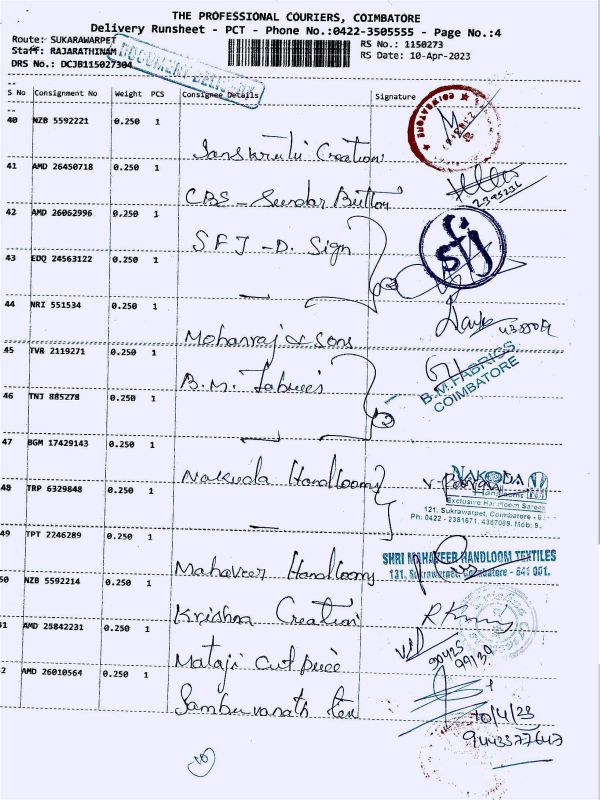 THE PROFESSIONAL COURIERS, COIMBATORE
Delivery Runsheet - PCT - Phone No.:0422-3505555 - Page No.:4
Route: SUKARAWARPET
RS No.: 1150273
Staff: RAJARATHINAM
RS Date: 10-Apr-2023
DRS No.: DCJB115027304
DOCUMENT DELIVERY
S No Consignment No Weight PCS Consignee Details Signature
40 NZB 5592221 0.250 1
Creation
41 AMD 26450718 0.250 1
CBS - Sundar Button
42 AMD 26062996 0.250 1
SFJ - D. Sign
43 EDQ 24563122 0.250 1
44 NRI 551534 0.250 1
Mohanraj & Sons
45 TVR 2119271 0.250 1
B.M. Fabrics
B.M. FABRICS
COIMBATORE
46 TNJ 885278 0.250 1
2
47 BGM 17429143 0.250 1
Nakoda Handlooms
NAKODA
Handlooms
Exclusive Handloom Sarees
121, Sukrawarpet, Coimbatore -
Ph: 0422 - 2381671, 4367089, Mob: 9
48 TRP 6329848 0.250 1
49 TPT 2246289 0.250 1
Mahaveer Handlooms
SHRI MAHAVEER HANDLOOM TEXTILES
131, Sukrawarpet, Coimbatore - 641 001.
50 NZB 5592214 0.250 1
Krishna Creation
51 AMD 25842231 0.250 1
Mataji Cut Piece
90425
99139
52 AMD 26010564 0.250 1
Sambuvanath Tex
10/4/23
9443577647
10